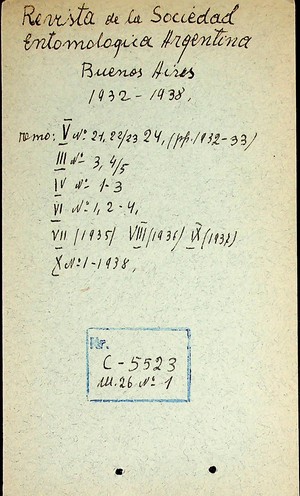 Revista de la Sociedad
Entomologica Argentina
Buenos Aires
1932 - 1938,
томо: V № 21, 22/23 24, (pp. 1932-33)
III № 3, 4/5
IV № 1-3
VI № 1, 2-4,
VII (1935) VIII (1936) IX (1937)
X № 1-1938,
Nr.
C-5523
Ш. 26 № 1